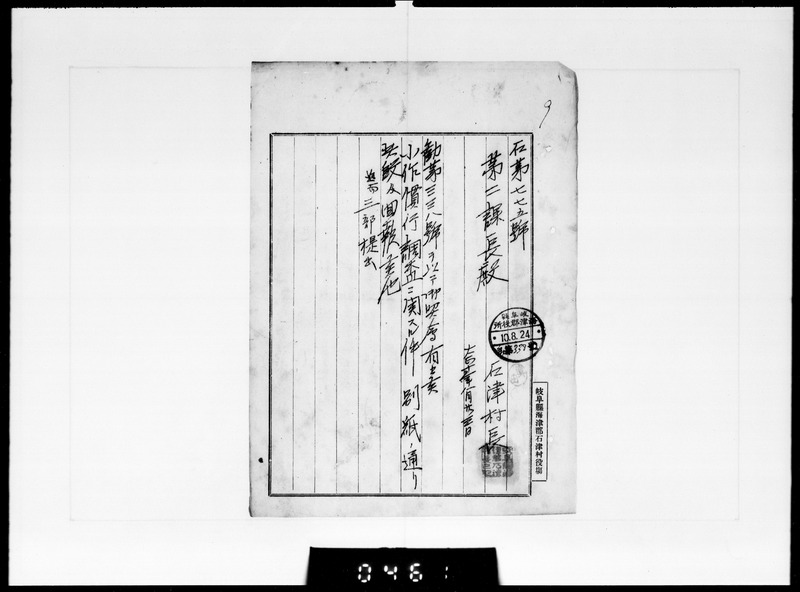 9
石第七七五號
第二課長殿
石津村長
勸第三三八號ヲ以テ御照會有之
小作慣行調査ニ関スル件別紙ノ通リ
及回報候也
追而三部提出
岐阜縣
海津郡役所
10.8.24
岐阜縣海津郡石津村役場
0461